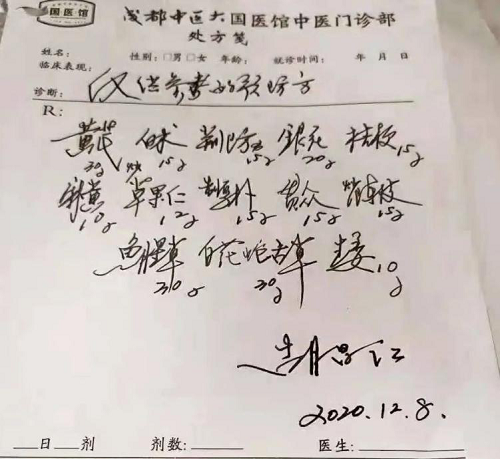 国医馆
成都中医大国医馆中医门诊部
处方笺
姓名： 性别：□男□女 年龄： 就诊时间： 年 月 日
临床表现：
诊断： 仅供参考的预防方
R:
黄芪 30g 炒白术 15g 荆防各 15g 银花 20g 桔梗 15g
10g 草果仁 12g 制厚朴 15g 贯众 15g 15g
鱼腥草 30g 白花蛇舌草 30g 10g
2020.12.8.
日 剂 剂数： 医生：